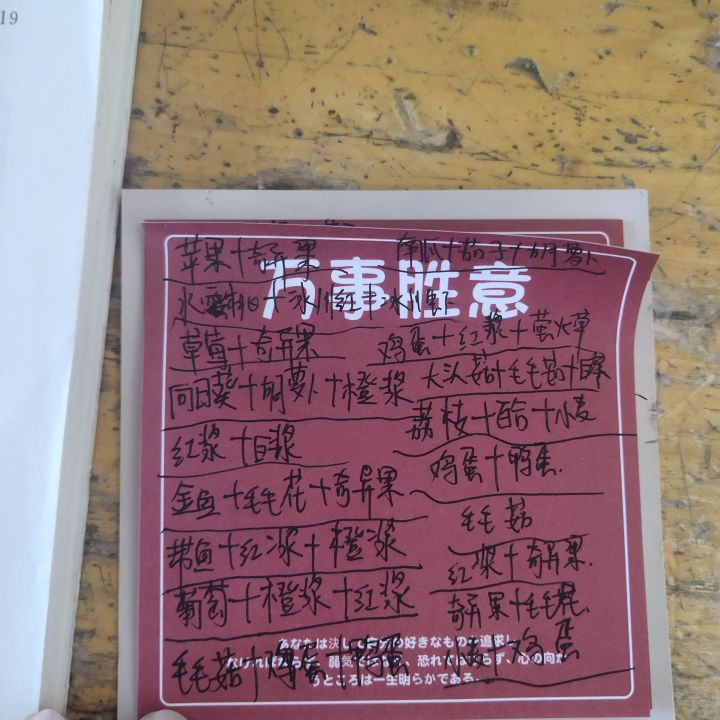 19
苹果十奇异果
南瓜十茄子十胡萝卜
万事胜意
水蜜桃十冰
草鱼十奇异果
鸡蛋十红浆十萤火草
向日葵十胡萝卜十橙浆
大头菇十毛毛菇十白果
荔枝十百合十小麦
红浆十白浆
鸡蛋十鸭蛋.
金鱼十毛毛花十奇异果
毛毛菇
带鱼十红浆十橙浆
红浆十奇异果.
葡萄十橙浆十红浆
奇异果十毛毛
あなたは決し 好きなものを追求し
なければ 弱気で 恐れて らず、心の向か
うところは一生明らかである
毛毛菇十鸡蛋十
十鸡蛋